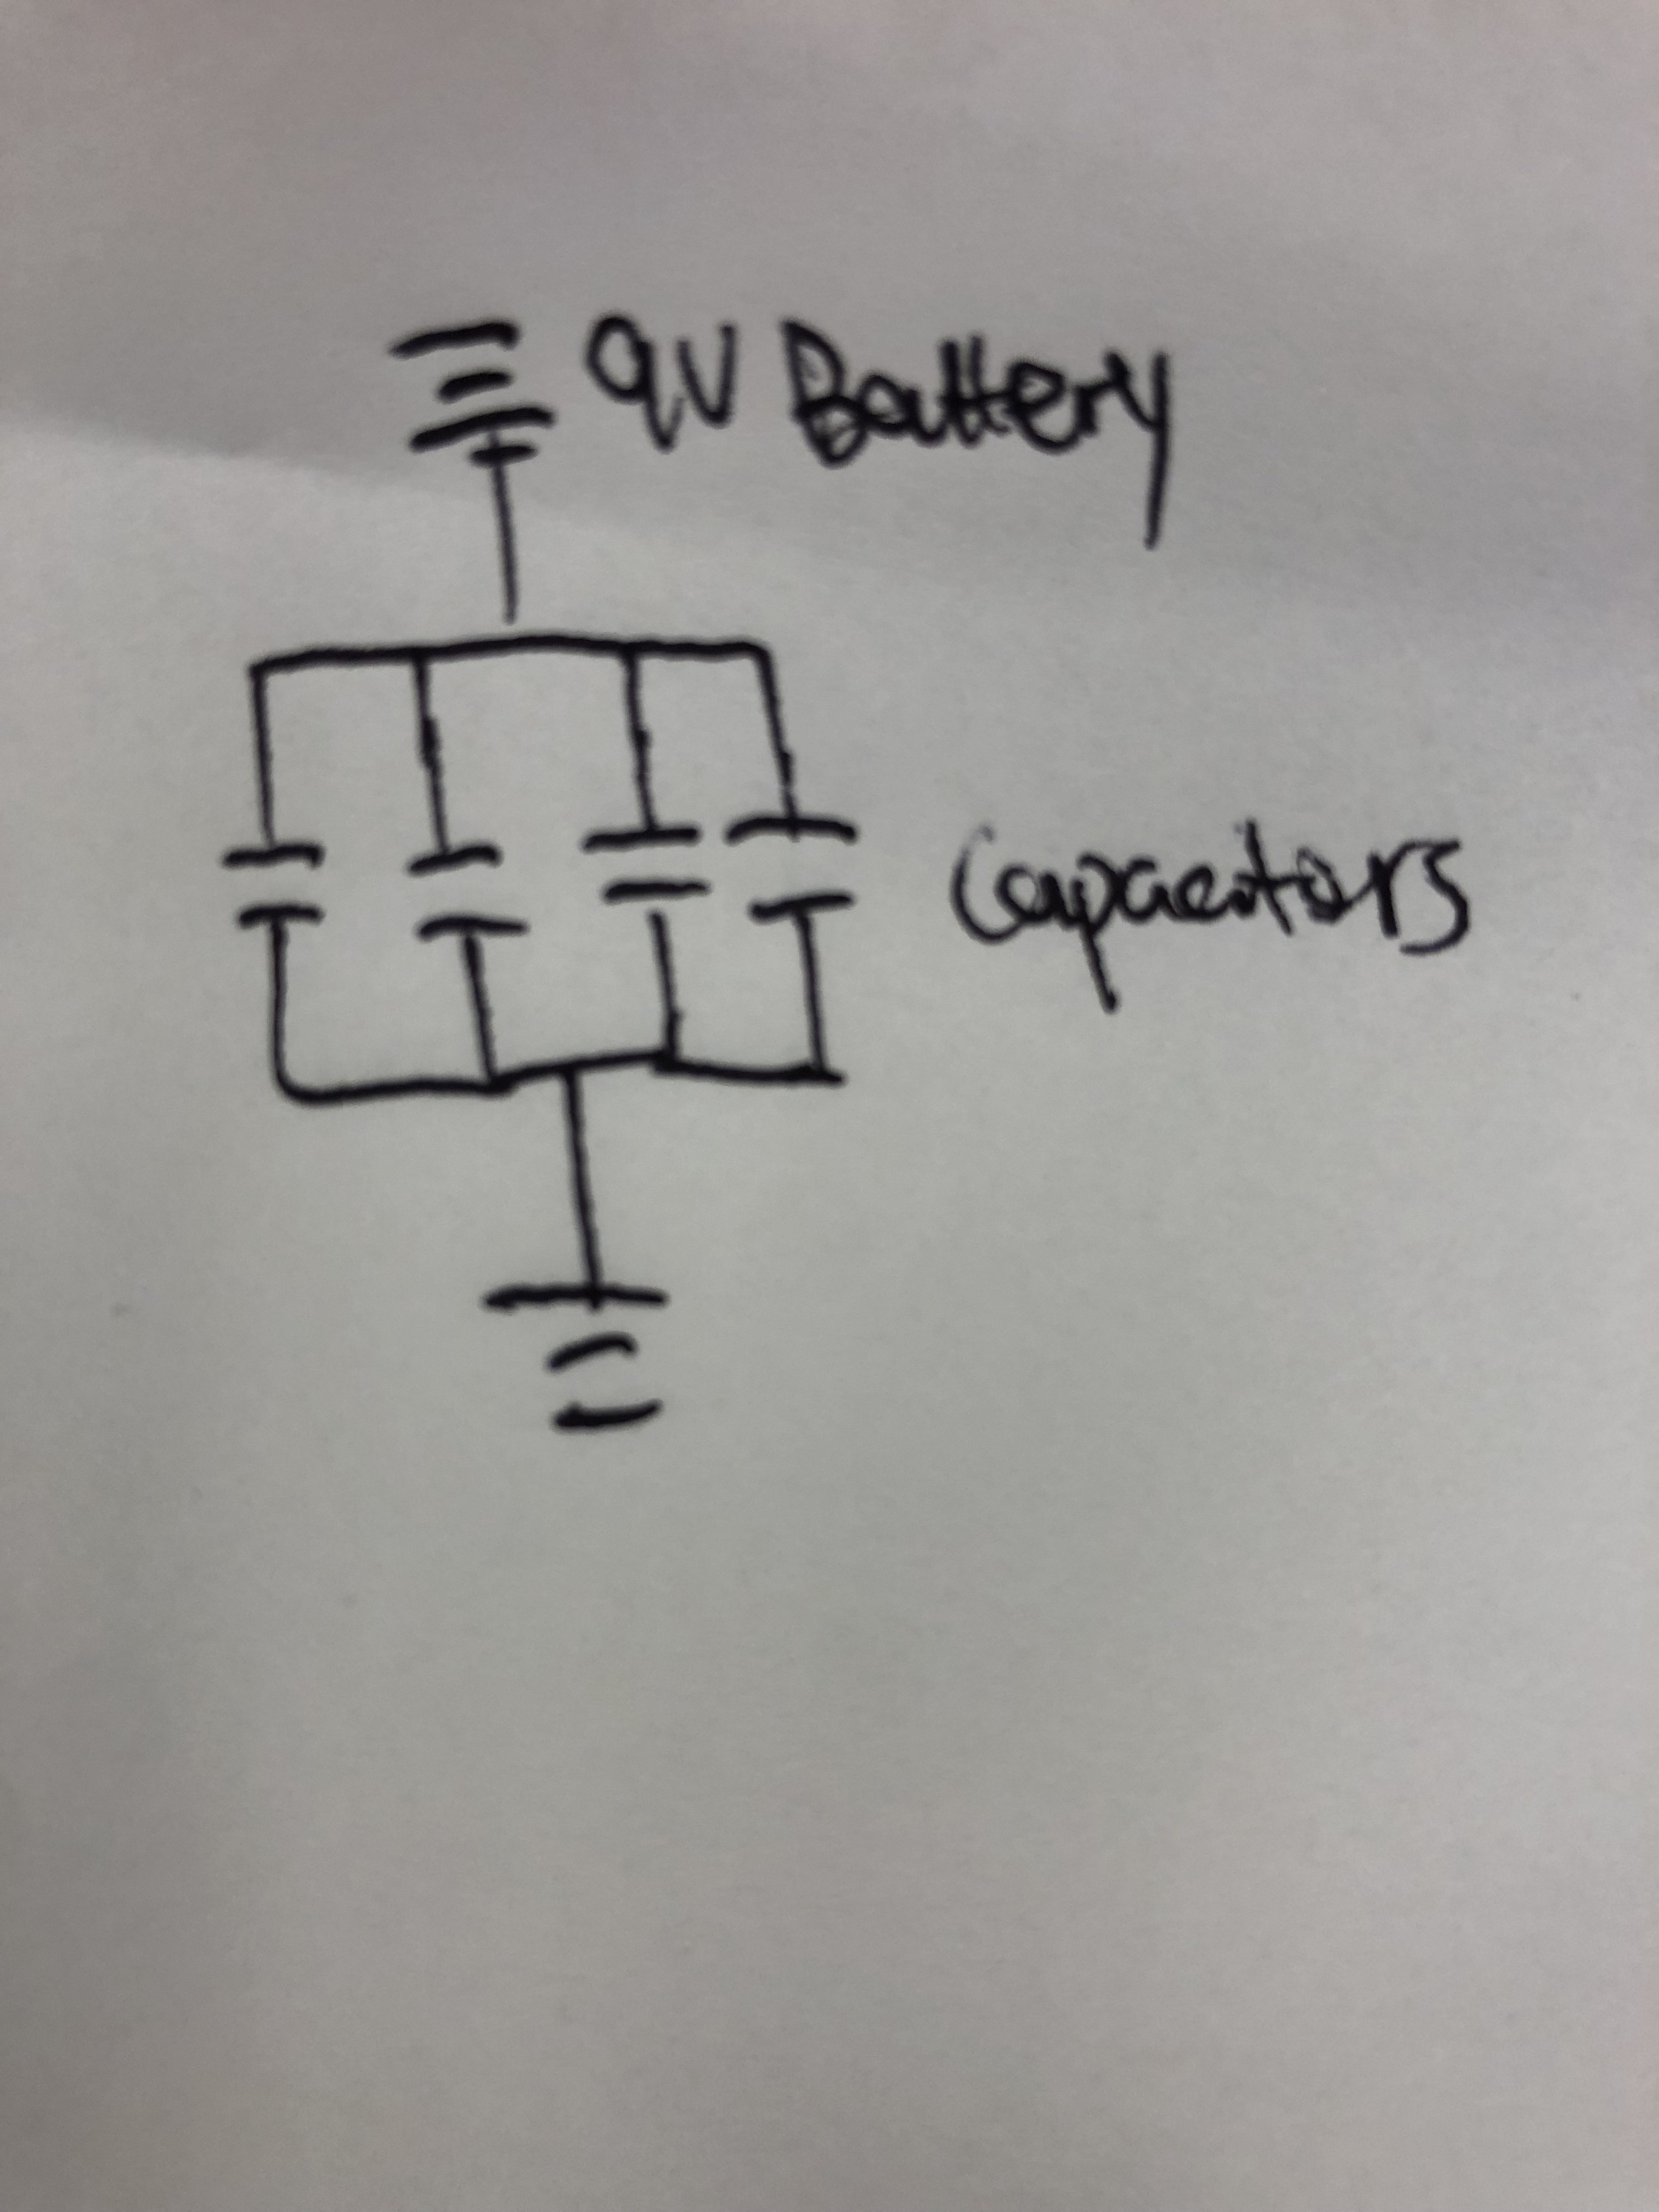 9V Battery
Capacitors